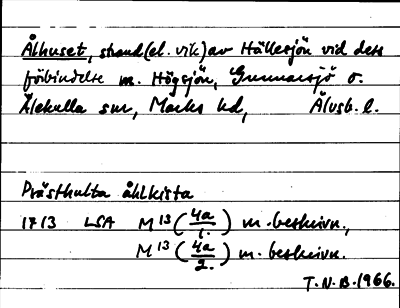 Ålhuset, strand (el. vik) av Hällesjön vid dess
förbindelse m. Högsjön, Gunnarsjö o.
Älekulla snr, Marks hd, Älvsb. l.
Prästhulta åhlkista
1713 LSA M 13 (4a/1.) m. beskrivn.,
M 13 (4a/2.) m. beskrivn.
T.N.B. 1966.